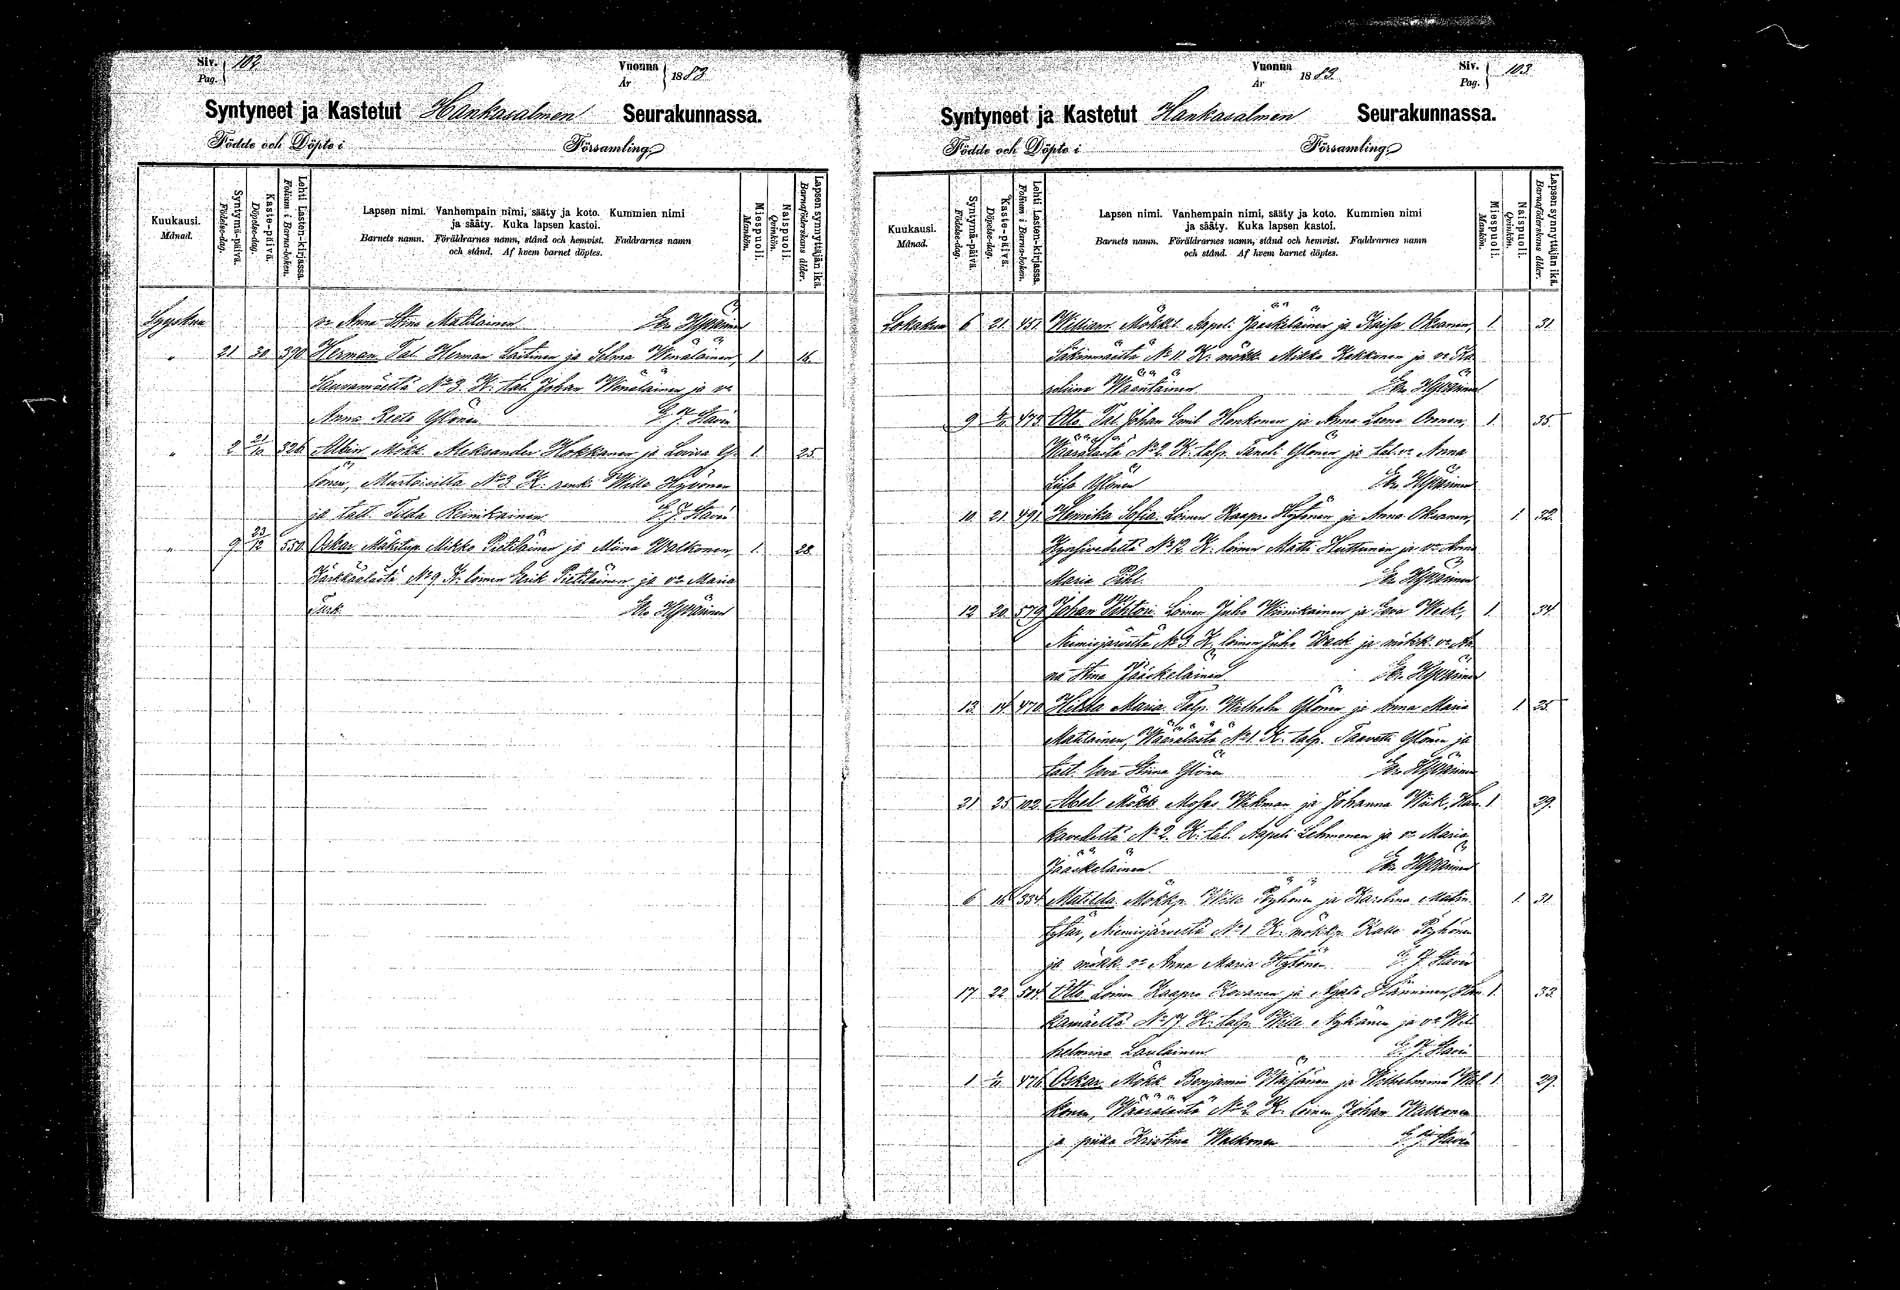 Siv. 102.
Pag.
Vuonna 1883
År
Syntyneet ja Kastetut Hankasalmen Seurakunnassa.
Födde och Döpte i Församling
Kuukausi. Månad.
Syntymä-päivä. Födelse-dag.
Kaste-päivä. Döpelse-dag.
Lehti Lasten-kirjassa. Folium i Barna-boken.
Lapsen nimi. Vanhempain nimi, sääty ja koto. Kummien nimi
ja sääty. Kuka lapsen kastoi.
Barnets namn. Föräldrarnes namn, stånd och hemvist. Faddrarnes namn
och stånd. Af hvem barnet döptes.
Miespuoli. Mankön.
Naispuoli. Qvinkön.
Lapsen synnyttäjän ikä. Barnaföderskans ålder.
Syyskuu vo Anna Stina Matilainen Hyvärinen
„ 21 30 390 Herman Tal. Herman Laitinen ja Selma Wenäläinen, 1. 16.
Saunamäeltä No 3. K: tal. Johan Wenäläinen ja vo
Anna Reeta Ylönen E. J. Stavén
„ 2 21/10 326. Albin Mökk. Aleksander Hokkanen ja Loviisa Y- 1. 25.
lönen, Murtoisilta No 3. K: renki Wille Hyvönen
ja tatt. Tilda Reinikainen E. J. Stavén
„ 9 23/12 550. Oskar Mäkitup. Mikko Pietiläinen ja Miina Walkonen, 1. 28.
Kärkkäälästä No 9. K: loinen Erik Pietiläinen ja vo Maria
Turk. Hyvärinen
Vuonna 1883.
År
Siv. 103.
Pag.
Syntyneet ja Kastetut Hankasalmen Seurakunnassa.
Födde och Döpte i Församling
Kuukausi. Månad.
Syntymä-päivä. Födelse-dag.
Kaste-päivä. Döpelse-dag.
Lehti Lasten-kirjassa. Folium i Barna-boken.
Lapsen nimi. Vanhempain nimi, sääty ja koto. Kummien nimi
ja sääty. Kuka lapsen kastoi.
Barnets namn. Föräldrarnes namn, stånd och hemvist. Faddrarnes namn
och stånd. Af hvem barnet döptes.
Miespuoli. Mankön.
Naispuoli. Qvinkön.
Lapsen synnyttäjän ikä. Barnaföderskans ålder.
Lokakuu 6 21. 451. William. Mökkl. Aapeli Jääskeläinen ja Kaisa Oksanen, 1. 31.
No 11. K: mökk. Mikko Kekkonen ja vo Ka-
roliina Wääntäinen Hyvärinen
9 473. Otto. Tal. Johan Emil Honkonen ja Anna Leena Oinonen, 1. 35.
Wäärälästä No 2. K: talp. Taneli Ylönen ja tal. vo Anna
Liisa Ylönen Hyvärinen
10. 21. 491. Henrika Sofia. Loinen Kaapro Hytönen ja Anna Oksanen, 1. 32.
Kynsivedeltä No 12. K: loinen Matti Huttunen ja vo Anna
Maria Pihl. Hyvärinen
12. 20. 579. Johan Loinen Juho Wiinikainen ja Eeva Weck, 1. 34.
Niemisjärveltä No 3. K: loinen Juho Weck ja mökk. vo An-
na Stina Jääskeläinen Hyvärinen
13. 14. 470. Hilda Maria. Talp. Wilhelm Ylönen ja Anna Maria 1. 35.
Matilainen, Wäärälästä No 1. K: talp. Taavetti Ylönen ja
tatt. Eeva Stiina Ylönen Hyvärinen
21 25 102. Abel Mökk. Moses Wekman ja Johanna Wiik, Han- 1 39.
kavedeltä No 2. K: tal. Aapeli Lehmonen ja vo Maria
Jääskeläinen. Hyvärinen
6 16 534. Matilda. Mökkp. Wille Pöyhönen ja Karolina Matin- 1. 31
tytär, Niemisjärveltä No 1. K: mökkp. Kalle Pöyhönen
ja mökk. vo Anna Maria Hytönen E. J. Stavén
17 22. 504. Otto Loinen Kaapro Kovanen ja Agata Hänninen, Han- 1. 33.
kamäeltä No 17. K: talp. Wille Nykänen ja vo Wil-
helmina Laulainen. E. J. Stavén
1 1/11. 476. Oskar. Mökk. Benjamin Wäisänen ja Wilhelmina Wal- 1. 29.
konen, Wäärälästä No 2. K: loinen Johan Walkonen
ja piika Kristina Walkonen E. J. Stavén